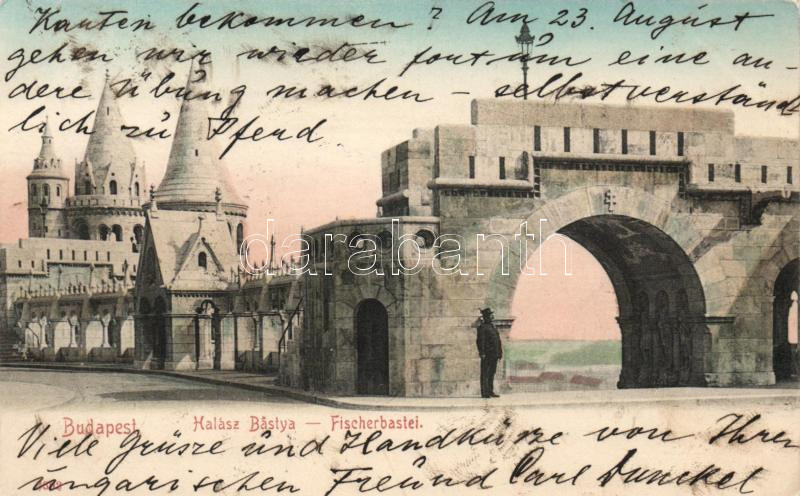 Karten bekommen? Am 23. August
gehen wir wieder fort um eine an-
dere Übung machen – selbstverständ
lich zu Pferd
darabanth.com
Budapest. Halász Bástya — Fischerbastei.
Viele Grüsze und Handküsze von Ihrem
ungarischen Freund Carl Dunckel